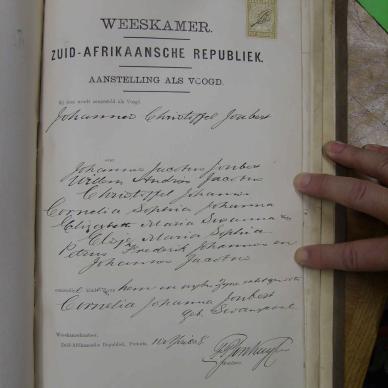 WEESKAMER.
ZUID-AFRIKAANSCHE REPUBLIEK.
AANSTELLING ALS VOOGD.
Hij is aangesteld als Voogd
Johannes Christoffel Joubert
over
Johannes Jacobus Joubert
Willem Andries Jacobus
Christoffel Johannes
Cornelia Sophia Johanna
Elizabeth Maria Susanna
Maria Sophia
Petrus Frederik Johannes en
Johannes Jacobus
kinderen hem en
Cornelia Johanna Joubert
geb.
Weeskamer,
Zuid-Afrikaansche Republiek, Pretoria,